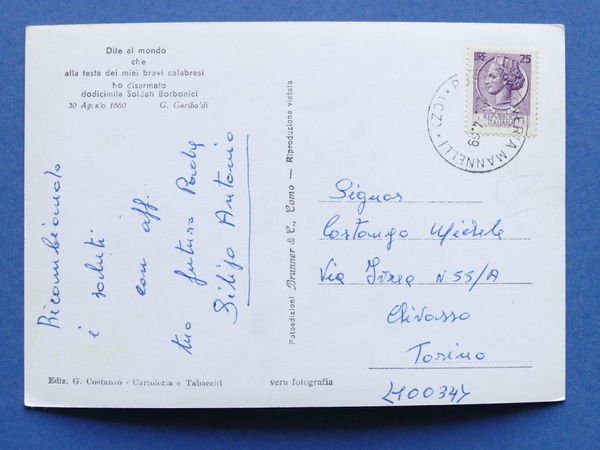 Dite al mondo
che
alla testa dei miei bravi calabresi
ho disarmato
dodicimila Soldati Borbonici
30 Agosto 1860 G. Garibaldi
Ricambiando
i saluti
con aff.
tuo futuro Padre
Antonio
Fotoedizioni Brunner & C., Como — Riproduzione vietata
LIRE 25
REPUBBLICA
ITALIANA
NERIA MANNELLI (CZ)
4.69
Signor
Costanzo Michele
Via Ivrea N 55/A
Chivasso
Torino
Ediz. G. Costanzo - Cartoleria e Tabacchi
vera fotografia